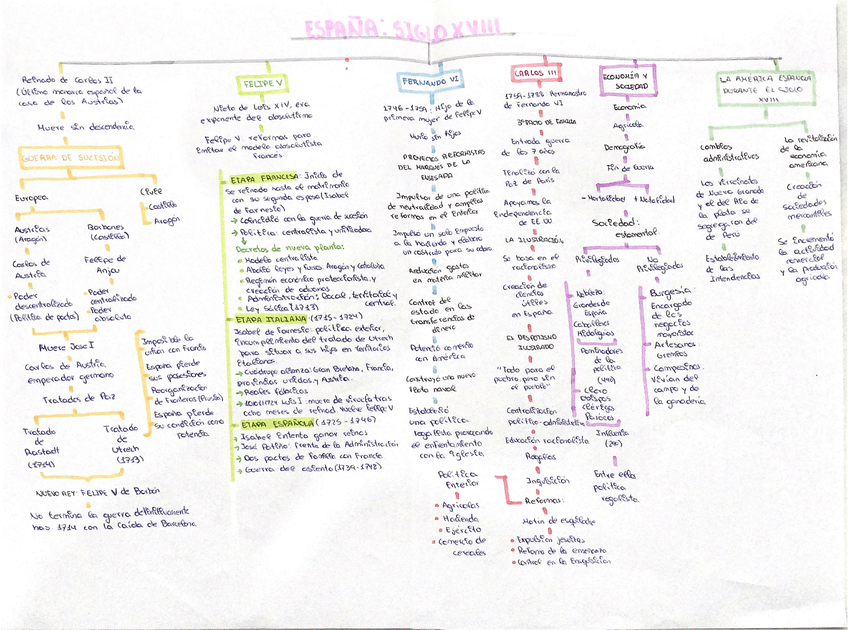 ESPAÑA: SIGLO XVIII
Reinado de Carlos II
(Último monarca español de la
casa de los Austrias)
Muere sin descendencia
GUERRA DE SUCESIÓN
Europea
Civil
Castilla
Aragón
Austrias
(Aragón)
Borbones
(Castilla)
Carlos de
Austria
Felipe de
Anjou
Poder
descentralizado
(Política de pacto)
Poder
centralizado
Poder
absoluto
Muere Jose I
Carlos de Austria,
emperador germano
Tratados de Paz
Tratado
de
Rastadt
(1714)
Tratado
de
Utrech
(1713)
Imposible la
unión con Francia
España pierde
sus posesiones
Reorganización
de Fronteras
España pierde
su condición como
potencia
NUEVO REY: FELIPE V de Borbón
No termina la guerra definitivamente
has. 1714 con la caída de Barcelona.
FELIPE V
Nieto de Luis XIV, era
exponente del absolutismo
Felipe V: reformas para
imitar el modelo absolutista
frances
ETAPA FRANCESA: Inicio de
se reinado hasta el matrimonio
con su segunda esposa (Isabel
de Farnesio)
→ Coincidió con la guerra de sucesión
→ Política: centralista y unificadora
Decretos de nueva planta:
• Modelo centralista
• Abolió leyes y fueros Aragón y Cataluña
• Regimen económico proteccionista, y
creación de aduanas
• Administración: local, territorial y
central.
• Ley Sálica (1713)
ETAPA ITALIANA (1715-1724)
Isabel de Farnesio: política exterior,
incumplimiento del tratado de Utrech
para situar a sus hijos en territorios
Italianos.
→ Cuádruple alianza: Gran Bretaña, Francia,
provincias unidas, y Austria.
→ Reales fábricas
Luis I: muere de viruela tras
ocho meses de reinad. Vuelve Felipe V
ETAPA ESPAÑOLA (1725-1746)
→ Isabel intenta ganar reinos
→ José Patiño: frente de la Administración
→ Dos pactos de familia con Francia
→ Guerra del asiento (1739-1748)
FERNANDO VI
1746-1759: Hijo de la
primera mujer de Felipe V
Murió sin hijos
PROYECTOS REFORMISTAS
DEL MARQUES DE LA
ENSENADA
Impulsor de una política
de neutralidad y amplias
reformas en el interior
Impulso un solo impuesto
a la Hacienda y elaboro
un catastro para su cobro
Reducción gastos
en materia militar
Control del
estado en las
transferencias de
dinero
Potenció comercio
con América
Construyo una nueva
flota naval
Estableció
una política
regalista provocando
el enfrentamiento
con la iglesia
Política
Interior
• Agrícolas
• Hacienda
• Ejército
• Comercio de
cereales
CARLOS III
1759-1788 Hermanastro
de Fernando VI
3º PACTO DE FAMILIA
Entrada guerra
de los 7 años
Finalizó con la
Paz de París
Apoyamos la
independencia
de EE UU
LA ILUSTRACIÓN
Se basa en el
racionalismo
Creación de
ciencias
útiles
en España
EL DESPOTISMO
ILUSTRADO
"Todo para el
pueblo, pero sin
el pueblo"
Centralización
político-administrativa
Educación racionalista
Regalías
Inquisición
Reformas:
Motin de esquilache
• Expulsion jesuitas
• Reforma de la enseñanza
• Control en la Inquisición
ECONOMÍA Y
SOCIEDAD
Economía
Agrícola
Demografía
Fin de Guerra
-Mortalidad +Natalidad
Sociedad:
estamental
Privilegiados
No
Privilegiados
Nobleza:
Grandes de
España
Caballeros
Hidalgos
Dominadores
de la
política
Clero
Obispos
clérigos
Párrocos
Influencia
Entre ella
política
regalista.
Burgesía:
Encargado
de los
negocios
mayoristas
• Artesanos
Gremios
• Campesinos:
Vivian del
campo y de
la ganadería
LA AMERICA ESPAÑOLA
DURANTE EL SIGLO
XVIII
Cambios
administrativos
Los virreinatos
de Nueva Granada
y el del Río de
la plata se
segregaron del
de Perú
Establecimiento
de las
Intendencias
La revitalización
de la
economia
americana
Creación
de
Sociedades
mercantiles
Se incrementó
la actividad
comercial
y la producción
agrícola